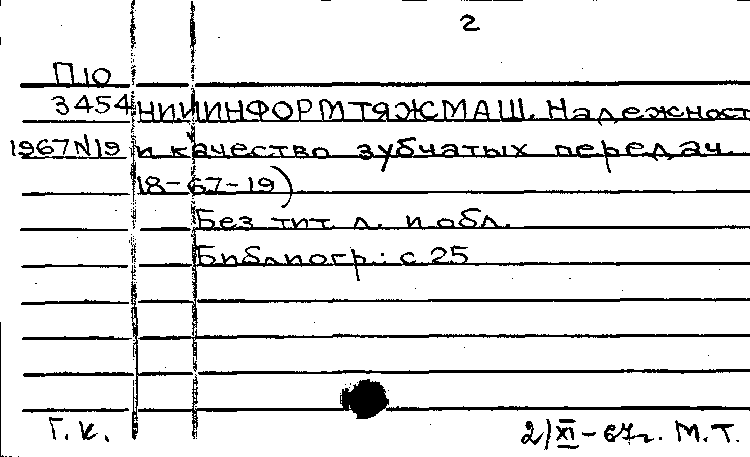 2
П10
3454 НИИИНФОРМТЯЖМАШ. Надежност
1967N19 и качество зубчатых передач.
18-67-19)
Без тит. л. и обл.
Библиогр.: с. 25
Г.К. 2/XI-67г. М.Т.